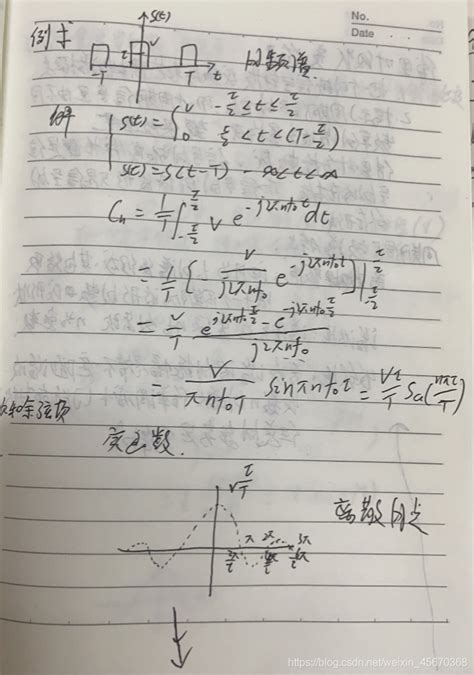 No.
Date
例:求
s(t)
τ V
-T T t 的频谱.
解 s(t) = { V -τ/2 ≤ t ≤ τ/2
0 τ/2 < t < (T-τ/2)
s(t) = s(t-T) -∞<t<∞
Cn = 1/T ∫_{-τ/2}^{τ/2} V e^{-j2πnf₀t} dt
= 1/T { - V/(j2πnf₀) e^{-j2πnf₀t} }|_{-τ/2}^{τ/2}
= V/T (e^{j2πnf₀τ/2} - e^{-j2πnf₀τ/2})/(j2πnf₀)
= V/(πnf₀T) sinπnf₀τ = Vτ/T Sa(nπτ/T)
余弦项
实函数.
V τ/T
离散的点
π 2π 3π
2π/τ 4π/τ 6π/τ
https://blog.csdn.net/weixin_45670368